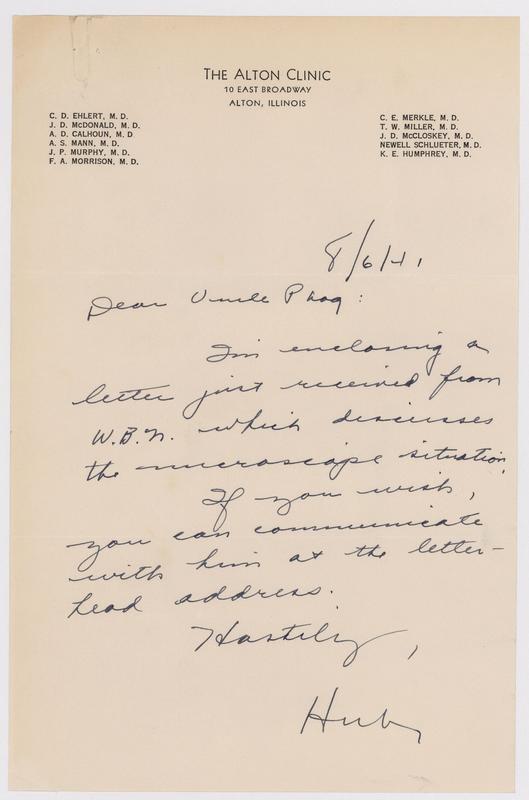 THE ALTON CLINIC
10 EAST BROADWAY
ALTON, ILLINOIS
C. D. EHLERT, M. D.
J. D. McDONALD, M. D.
A. D. CALHOUN, M. D
A. S. MANN, M. D.
J. P. MURPHY, M. D.
F. A. MORRISON, M. D.
C. E. MERKLE, M. D.
T. W. MILLER, M. D.
J. D. McCLOSKEY, M. D.
NEWELL SCHLUETER, M. D.
K. E. HUMPHREY, M. D.
8/6/41
Dear Uncle Phog:
I'm enclosing a
letter just received from
W.B.N. which discusses
the microscope situation.
If you wish,
you can communicate
with him at the letter-
head address.
Hastily,
Hub